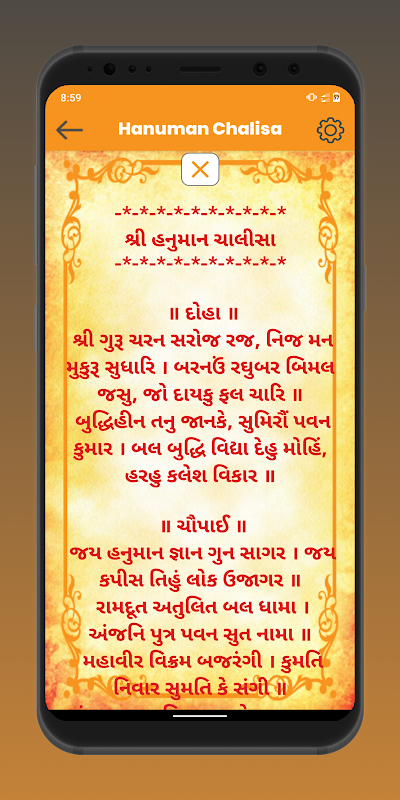 8:59
Hanuman Chalisa
-*-*-*-*-*-*-*-*-*-*-*
શ્રી હનુમાન ચાલીસા
-*-*-*-*-*-*-*-*-*-*-*
॥ દોહા ॥
શ્રી ગુરૂ ચરન સરોજ રજ, નિજ મન
મુકુરૂ સુધારિ । બરનઉં રઘુબર બિમલ
જસુ, જો દાયકુ ફલ ચારિ ॥
બુદ્ધિહીન તનુ જાનકે, સુમિરૌં પવન
કુમાર । બલ બુદ્ધિ વિદ્યા દેહુ મોહિં,
હરહુ કલેશ વિકાર ॥
॥ ચૌપાઈ ॥
જય હનુમાન જ્ઞાન ગુન સાગર । જય
કપીસ તિહું લોક ઉજાગર ॥
રામદૂત અતુલિત બલ ધામા ।
અંજનિ પુત્ર પવન સુત નામા ॥
મહાવીર વિક્રમ બજરંગી । કુમતિ
નિવાર સુમતિ કે સંગી ॥